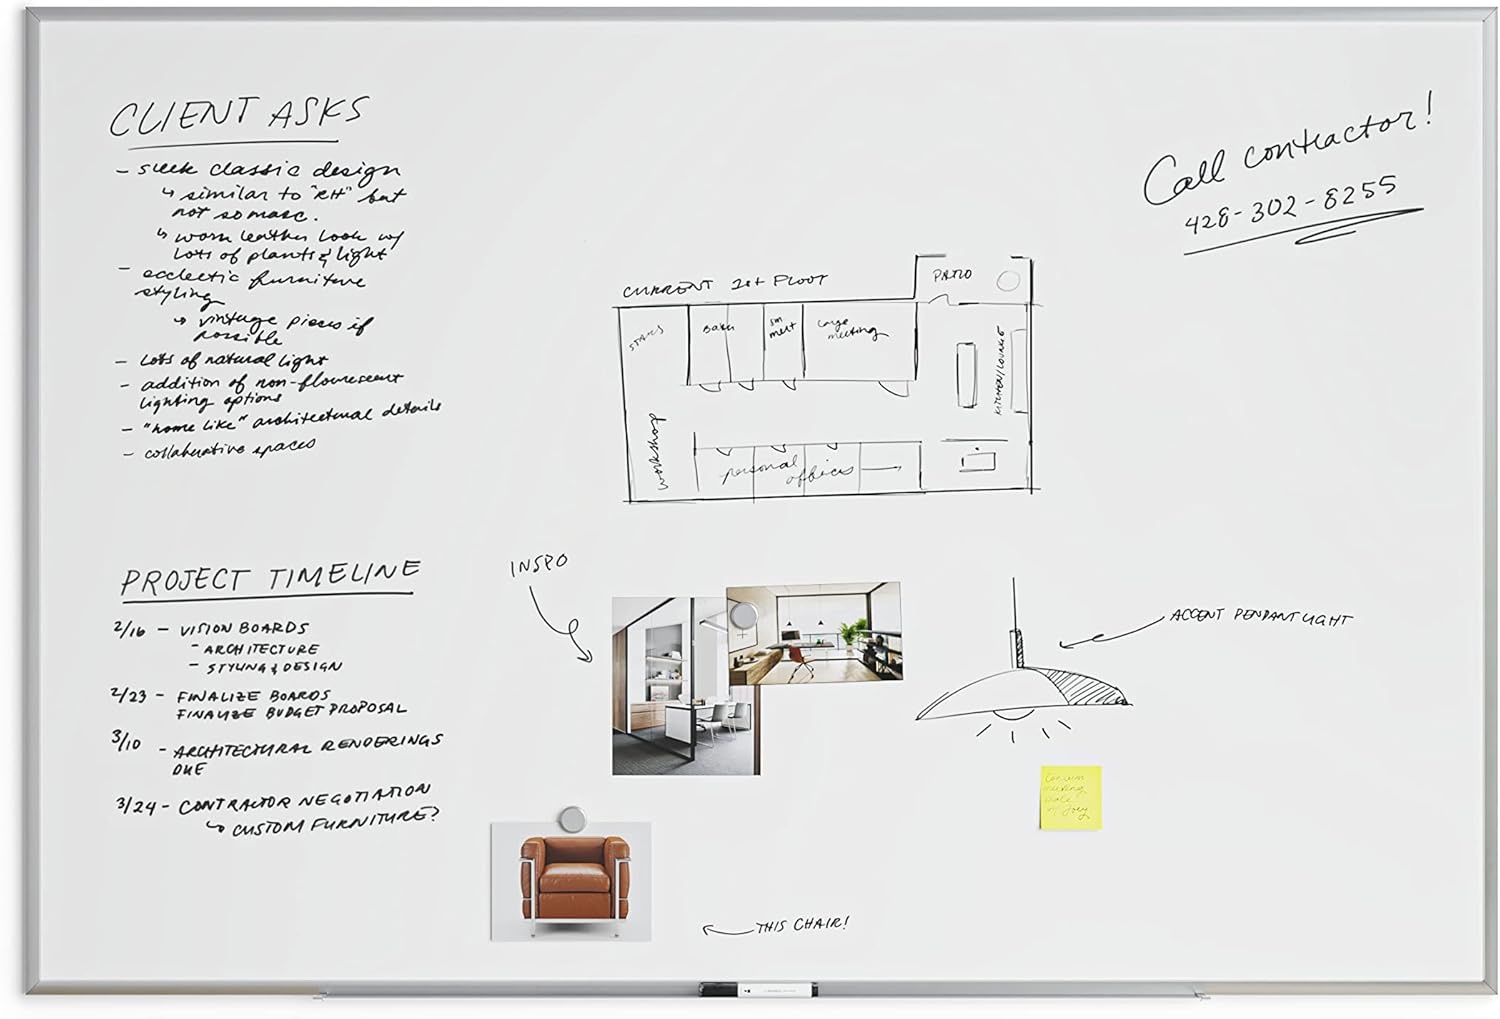 CLIENT ASKS
- sleek classic design
↳ similar to "RH" but
not so masc.
↳ worn leather look w/
lots of plants & light
- ecclectic furniture
styling
↳ vintage pieces if
possible
- Lots of natural light
- addition of non-flourescent
lighting options
- "home like" architectural details
- collaborative spaces
Call contractor!
428-302-8255
CURRENT 2st FLOOR
PATIO
STAIRS
sm
meet
large
meeting
KITCHEN/LOUNGE
workshop
personal
offices
PROJECT TIMELINE
2/16 - VISION BOARDS
- ARCHITECTURE
- STYLING & DESIGN
2/23 - FINALIZE BOARDS
FINALIZE BUDGET PROPOSAL
3/10 - ARCHITECTURAL RENDERINGS
DUE
3/24 - CONTRACTOR NEGOTIATION
↳ CUSTOM FURNITURE?
INSPO
ACCENT PENDANT LIGHT
THIS CHAIR!